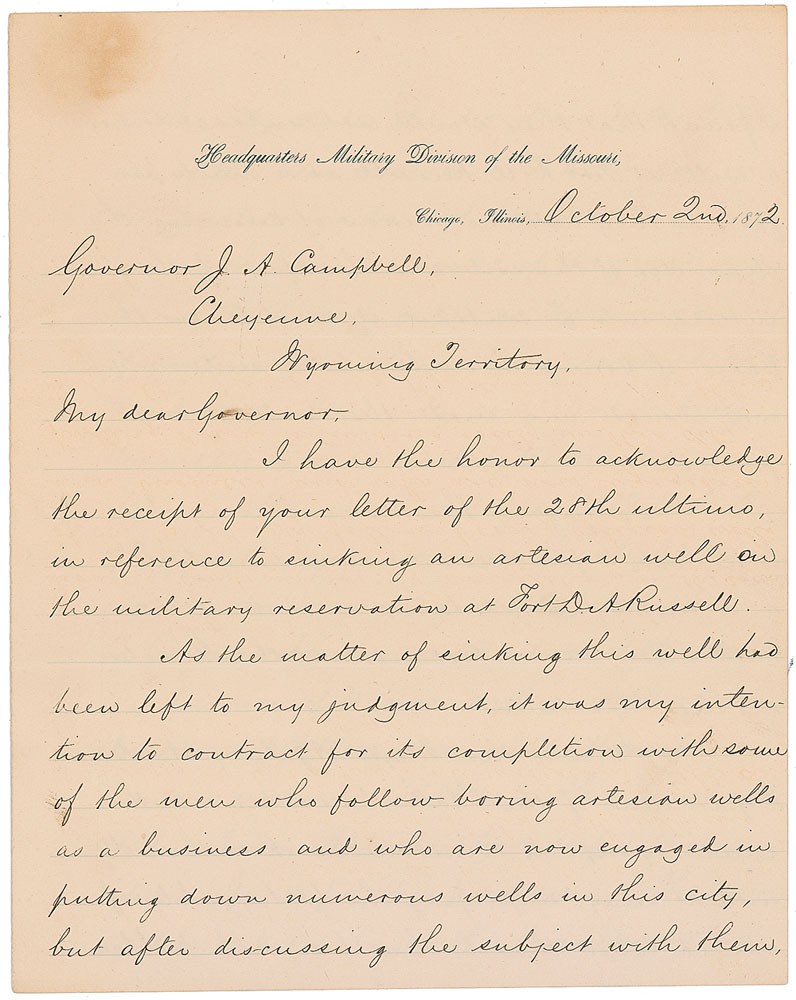 Headquarters Military Division of the Missouri,
Chicago, Illinois, October 2nd, 1872.
Governor J. A. Campbell,
Cheyenne,
Wyoming Territory,
My dear Governor,
I have the honor to acknowledge
the receipt of your letter of the 28th ultimo,
in reference to sinking an artesian well on
the military reservation at Fort D. A. Russell.
As the matter of sinking this well had
been left to my judgment, it was my inten-
tion to contract for its completion with some
of the men who follow boring artesian wells
as a business and who are now engaged in
putting down numerous wells in this city,
but after discussing the subject with them,